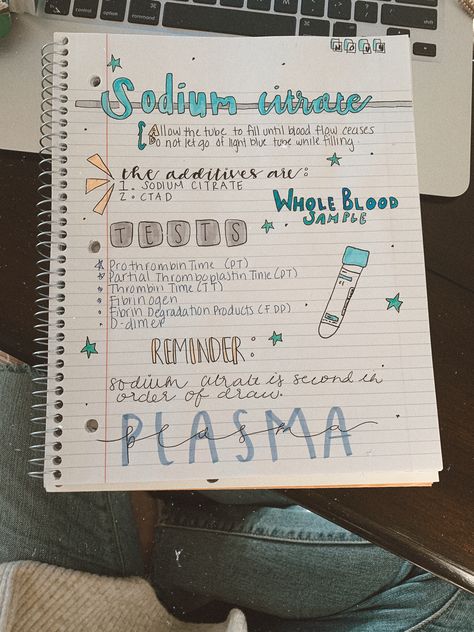 Sodium citrate
Allow the tube to fill until blood flow ceases
Do not let go of light blue tube while filling.
the additives are:
1. SODIUM CITRATE
2. CTAD
WHOLE BLOOD
SAMPLE
TESTS
Prothrombin Time (PT)
Partial Thromboplastin Time (PT)
Thrombin Time (TT)
Fibrinogen
Fibrin Degradation Products (FDP)
D-dimer
REMINDER:
sodium citrate is second in
order of draw.
PLASMA
plasma